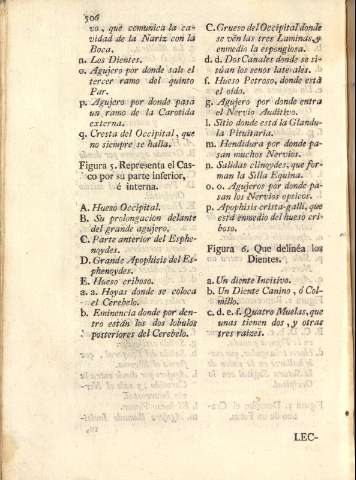 506
vo, que comunica la ca-
vidad de la Nariz con la
Boca.
n. Los Dientes.
o. Agujero por donde sale el
tercer ramo del quinto
Par.
p. Agujero por donde pasa
un ramo de la Carotida
externa.
q. Cresta del Occipital, que
no siempre se halla.
Figura 5. Representa el Cas-
co por su parte inferior,
é interna.
A. Hueso Occipital.
B. Su prolongacion delante
del grande agujero.
C. Parte anterior del Esphe-
noydes.
D. Grande Apophisis del Es-
phenoydes.
E. Hueso criboso.
a. a. Hoyas donde se coloca
el Cerebelo.
b. Eminencia donde por den-
tro están los dos lobulos
posteriores del Cerebelo.
C. Grueso del Occipital donde
se vén las tres Laminas, y
enmedio la esponglosa.
d. d. Dos Canales donde se si-
túan los senos laterales.
f. Hueso Petroso, donde está
el oído.
g. Agujero por donde entra
el Nervio Auditivo.
l. Sitio donde está la Glandu-
la Pituitaria.
m. Hendidura por donde pa-
san muchos Nervios.
n. Salidas clinoydes, que for-
man la Silla Equina.
o. o. Agujeros por donde pa-
san los Nervios opticos.
p. Apophisis crista-galli, que
está enmedio del hueso cri-
boso.
Figura 6. Que delinéa los
Dientes.
a. Un diente Incisivo.
b. Un Diente Canino, ó Col-
millo.
c. d. e. f. Quatro Muelas, que
unas tienen dos, y otras
tres raíces.
LEC-